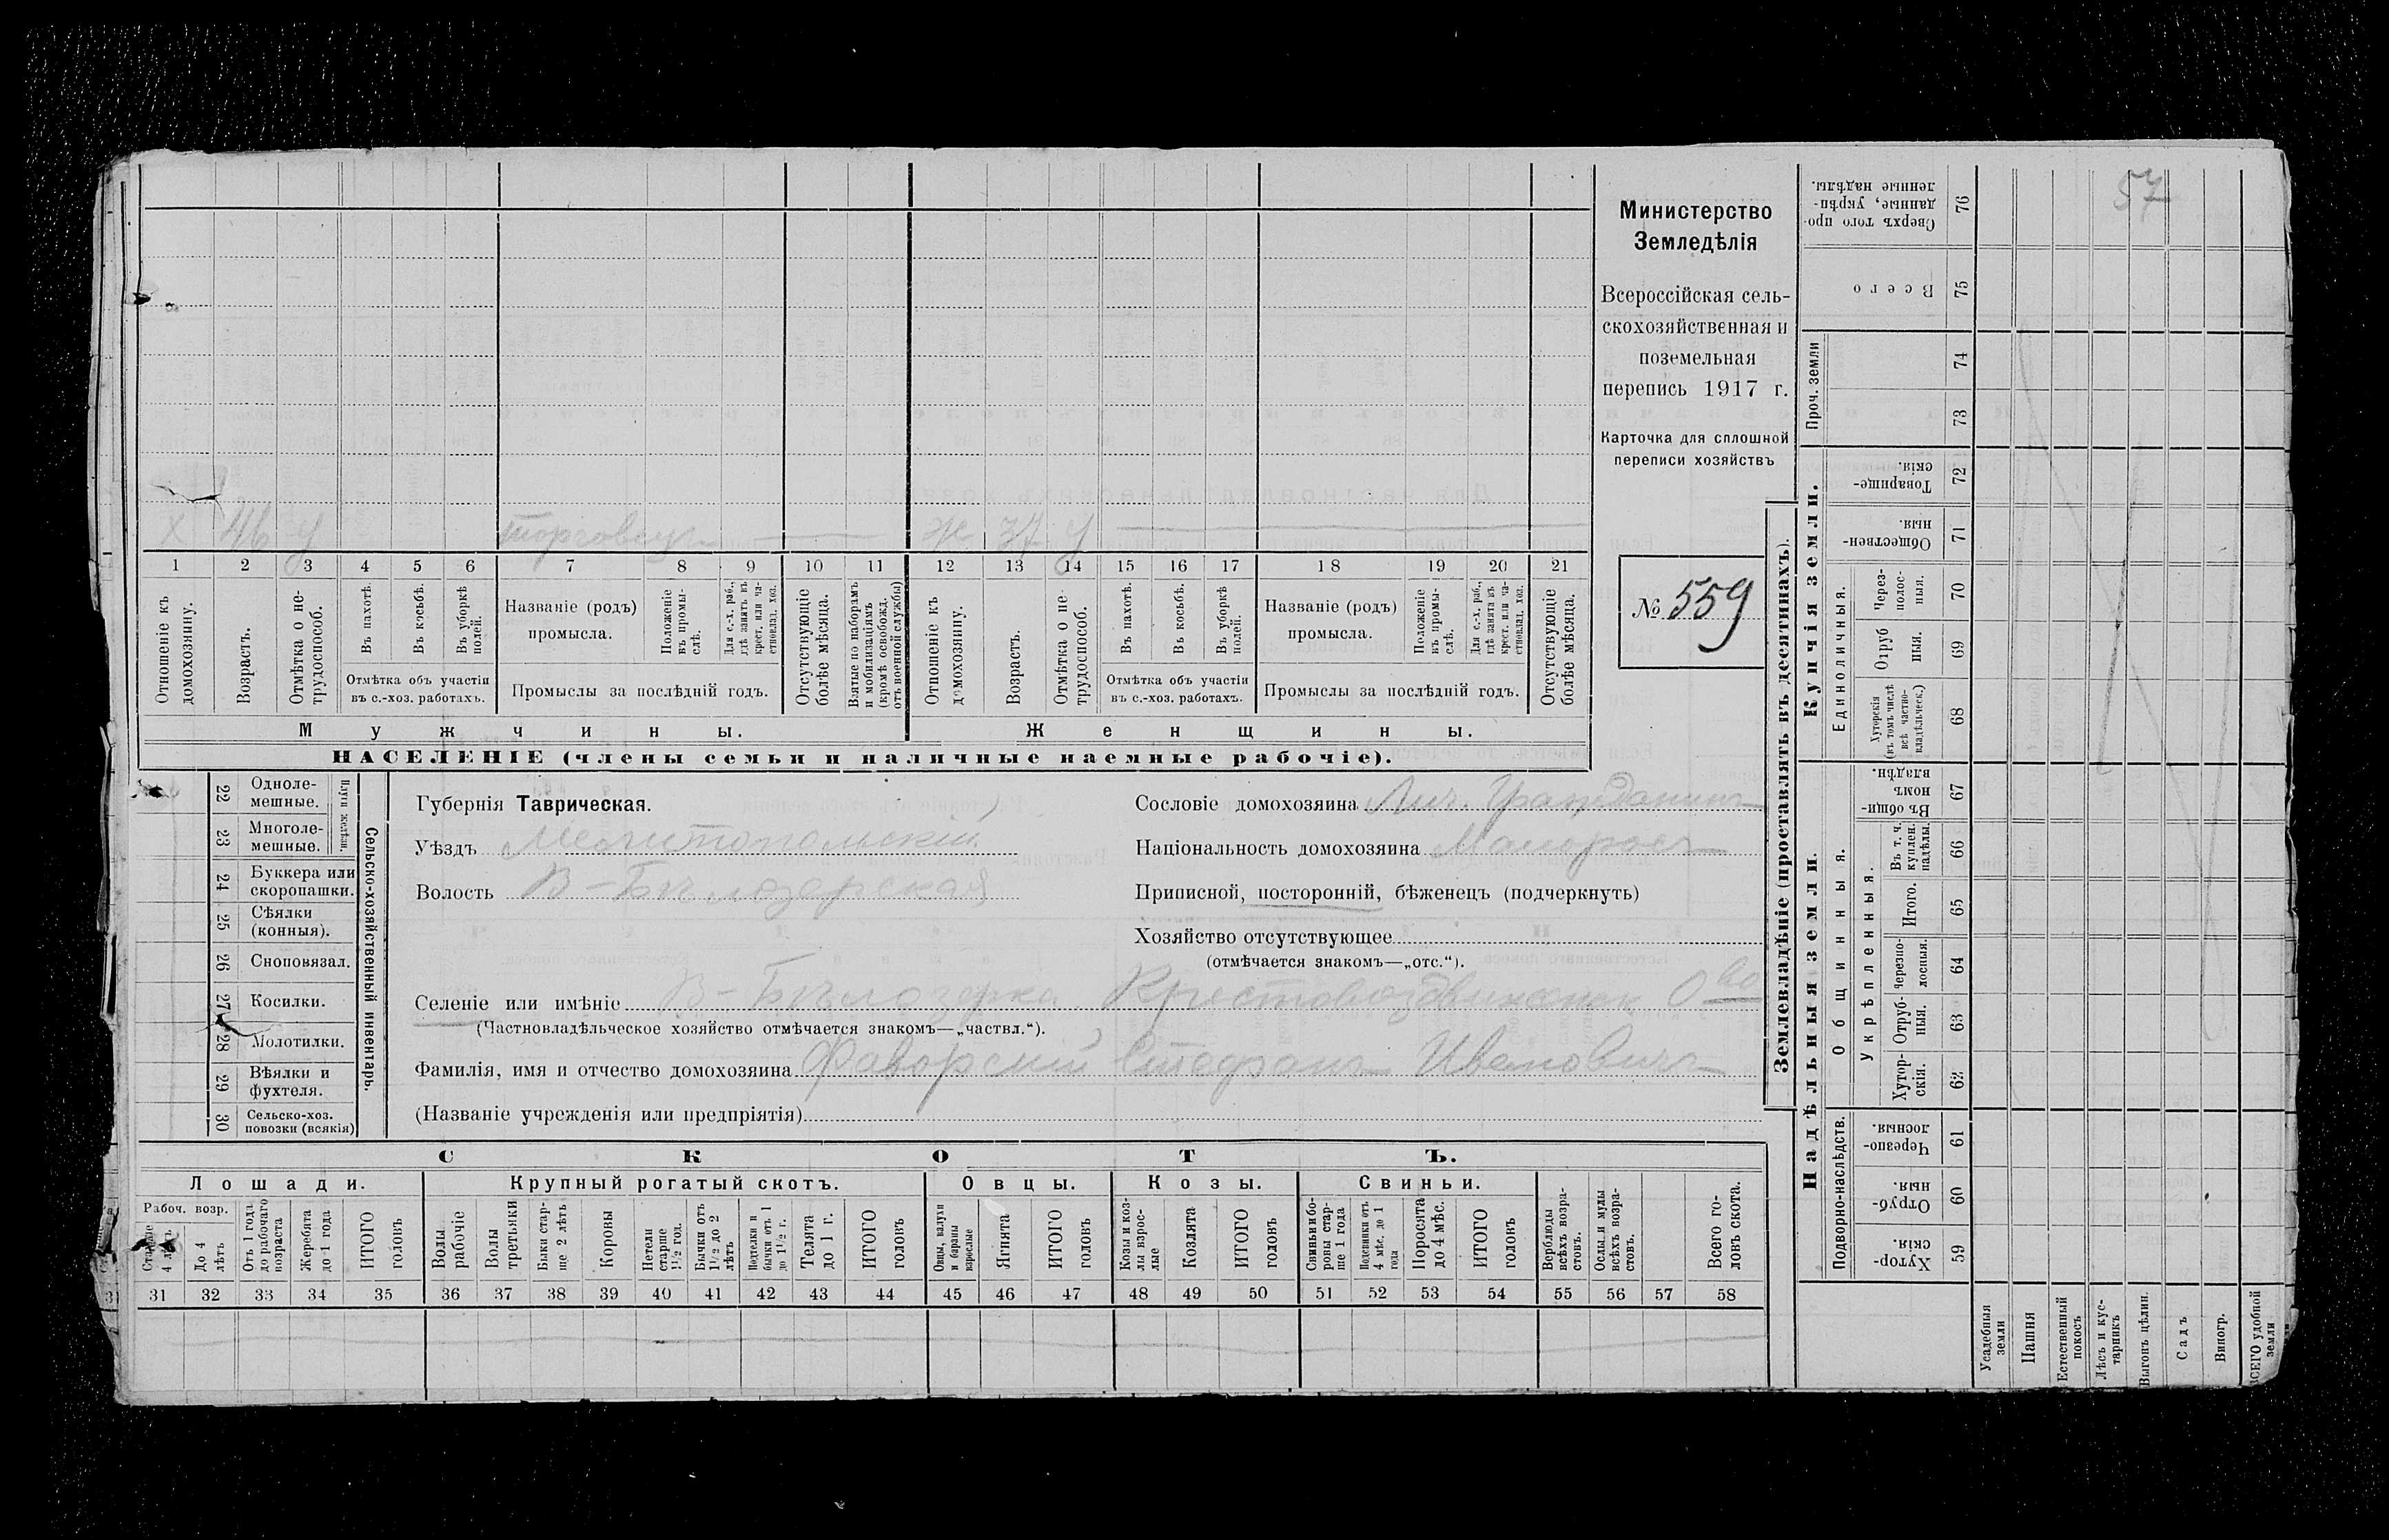 57
Министерство
Земледѣлія
Всероссійская сель-
скохозяйственная и
поземельная
перепись 1917 г.
Карточка для сплошной
переписи хозяйствъ
№ 559
Х 46 У торговецъ Ж 37 У
1 2 3 4 5 6 7 8 9 10 11 12 13 14 15 16 17 18 19 20 21
Отношеніе къ домохозяину.
Возрастъ.
Отмѣтка о не-трудоспособ.
Въ пахотѣ.
Въ косьбѣ.
Въ уборкѣ полей.
Отмѣтка объ участіи
въ с.-хоз. работахъ.
Названіе (родъ)
промысла.
Положеніе въ промы-слѣ.
Для с.-х. раб., гдѣ занятъ въ крест. или ча-стновлад. хоз.
Промыслы за послѣдній годъ.
Отсутствующіе болѣе мѣсяца.
Взятые по наборамъ и мобилизаціямъ (кромѣ освобожд. отъ военной службы)
Отношеніе къ домохозяину.
Возрастъ.
Отмѣтка о не-трудоспособ.
Въ пахотѣ.
Въ косьбѣ.
Въ уборкѣ полей.
Отмѣтка объ участіи
въ с.-хоз. работахъ.
Названіе (родъ)
промысла.
Положеніе въ промы-слѣ.
Для с.-х. раб., гдѣ занята въ крест. или ча-стновлад. хоз.
Промыслы за послѣдній годъ.
Отсутствующіе болѣе мѣсяца.
Мужчины. Женщины.
НАСЕЛЕНІЕ (члены семьи и наличные наемные рабочіе).
22 Одноле-мешные.
23 Многоле-мешные.
Плуги желѣзн.
24 Буккера или скоропашки.
25 Сѣялки (конныя).
26 Сноповязал.
27 Косилки.
28 Молотилки.
29 Вѣялки и фухтеля.
30 Сельско-хоз. повозки (всякія)
Сельско-хозяйственный инвентарь.
Губернія Таврическая.
Уѣздъ Мелитопольскій
Волость В-Бѣлозерская
Сословіе домохозяина Лич. Гражданинъ
Національность домохозяина Малороссъ
Приписной, посторонній, бѣженецъ (подчеркнуть)
Хозяйство отсутствующее
(отмѣчается знакомъ—„отс.“).
Селеніе или имѣніе В-Бѣлозерка Крестовоздвиженск О во
(Частновладѣльческое хозяйство отмѣчается знакомъ—„частвл.“).
Фамилія, имя и отчество домохозяина Фаворскій Стефанъ Ивановичъ
(Названіе учрежденія или предпріятія)
СКОТЪ.
Лошади. Крупный рогатый скотъ. Овцы. Козы. Свиньи.
Рабоч. возр.
Старше 4 лѣтъ
До 4 лѣтъ
Отъ 1 года до рабочаго возраста
Жеребята до 1 года
ИТОГО головъ
Волы рабочіе
Волы третьяки
Быки стар-ше 2 лѣтъ
Коровы
Нетели старше 1½ год.
Бычки отъ 1½ до 2 лѣтъ
Подтелки и бычки отъ 1 до 1½ г.
Телята до 1 г.
ИТОГО головъ
Овцы, валухи и бараны взрослые
Ягнята
ИТОГО головъ
Козы и коз-лы взрос-лые
Козлята
ИТОГО головъ
Свиньи и бо-ровы стар-ше 1 года
Подсвинки отъ 4 мѣс. до 1 года
Поросята до 4 мѣс.
ИТОГО головъ
Верблюды всѣхъ возра-стовъ.
Ослы и мулы всѣхъ возра-стовъ.
Всего го-ловъ скота.
31 32 33 34 35 36 37 38 39 40 41 42 43 44 45 46 47 48 49 50 51 52 53 54 55 56 57 58
Землевладѣніе (проставлять въ десятинахъ).
Надѣльныя земли. Купчія земли. Проч. земли
Подворно-наслѣдств.
Общинныя.
Укрѣпленныя.
Единоличныя.
Хутор-скія. 59
Отруб-ныя. 60
Черезпо-лосныя. 61
Хутор-скія. 62
Отруб-ныя. 63
Черезпо-лосныя. 64
Итого. 65
Въ т. ч. куплен. надѣлы. 66
Въ общин-номъ владѣн. 67
Хуторскія (въ томъ числѣ всѣ частно-владѣльческ.) 68
Отруб ныя. 69
Через-полос-ныя. 70
Обществен-ныя 71
Товарище-скія. 72
73
74
Всего 75
Сверхъ того про-данные, укрѣп-ленные надѣлы. 76
Усадебныя земли
Пашня
Естественный покосъ
Лѣсъ и кус-тарникъ
Выгонъ цѣлин.
Садъ
Виногр.
ВСЕГО удобной земли